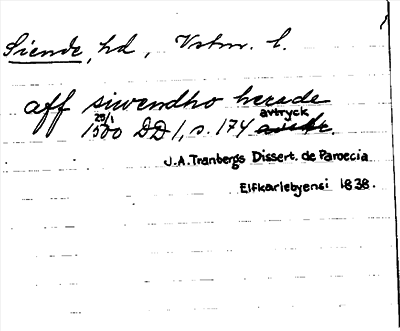 Siende, hd, Vstm. l.
aff siwendho herade
29/1 1500 DD 1, s. 174 avtryck
J.A. Tranbergs Dissert. de Paroecia
Elfkarlebyensi 1838.